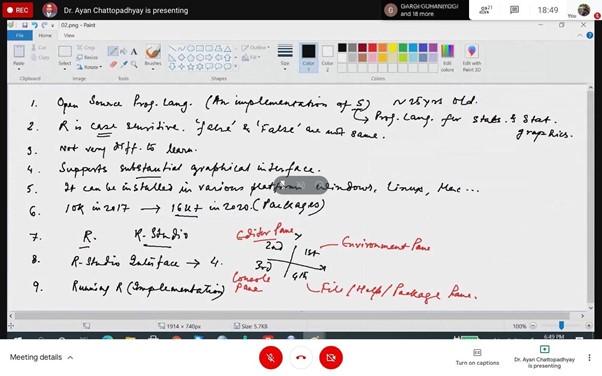 REC
Dr. Ayan Chattopadhyay is presenting
GARGI GUHANIYOGI
and 18 more
21
18:49
You
02.png - Paint
File Home View
Paste
Cut
Copy
Clipboard
Select
Crop
Resize
Rotate
Image
Tools
Brushes
Shapes
Outline
Fill
Size
Color 1
Color 2
Colors
Edit colors
Edit with Paint 3D
1. Open Source Prog. Lang. (An implementation of S) ~ 25 yrs old.
→ Prog. Lang. for Stats. & Stat. graphics.
2. R is case sensitive. 'false' & 'False' are not same.
3. Not very diff. to learn.
4. Supports substantial graphical interface.
5. It can be installed in various platforms Windows, Linux, Mac ...
6. 10K in 2017 → 16K+ in 2020. (Packages)
7. R. R-Studio
8. R-Studio Interface → 4.
9. Running R (Implementation)
Editor Pane
2nd 1st
Environment Pane
3rd 4th
Console Pane
File/Help/Package Pane.
1914 × 740px
Size: 5.7KB
100%
6:49 PM
Meeting details
Turn on captions
Dr. Ayan Chattopadhyay
is presenting